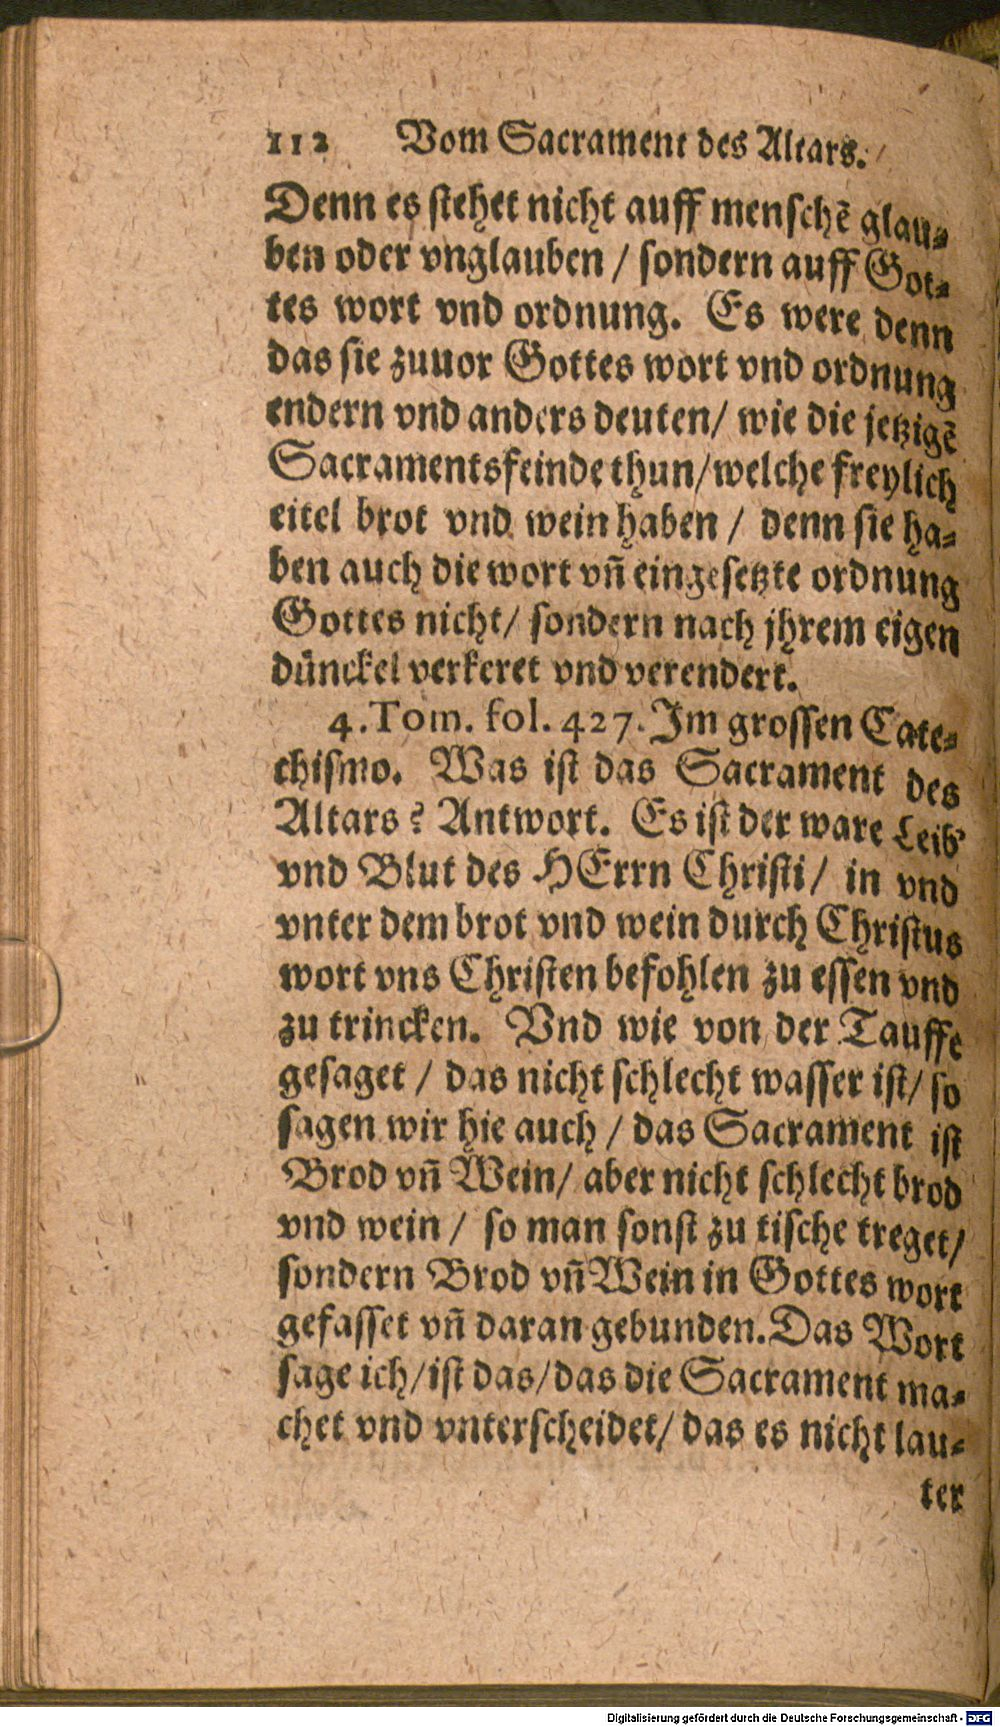 112 Vom Sacrament des Altars.
Denn es stehet nicht auff menschē glau⸗
ben oder vnglauben / sondern auff Got⸗
tes wort vnd ordnung. Es were denn
das sie zuuor Gottes wort vnd ordnung
endern vnd anders deuten/ wie die jetzigē
Sacramentsfeinde thun/welche freylich
eitel brot vnd wein haben / denn sie ha⸗
ben auch die wort vñ eingesetzte ordnung
Gottes nicht/ sondern nach jhrem eigen
dünckel verkeret vnd verendert.
4. Tom. fol. 427. Im grossen Cate⸗
chismo. Was ist das Sacrament des
Altars? Antwort. Es ist der ware Leib
vnd Blut des HErrn Christi/ in vnd
vnter dem brot vnd wein durch Christus
wort vns Christen befohlen zu essen vnd
zu trincken. Vnd wie von der Tauffe
gesaget / das nicht schlecht wasser ist/ so
sagen wir hie auch / das Sacrament ist
Brod vñ Wein/ aber nicht schlecht brod
vnd wein / so man sonst zu tische treget/
sondern Brod vñ Wein in Gottes wort
gefasset vñ daran gebunden. Das Wort
sage ich/ist das/das die Sacrament ma⸗
chet vnd vnterscheidet/ das es nicht lau⸗
ter
Digitalisierung gefördert durch die Deutsche Forschungsgemeinschaft - DFG